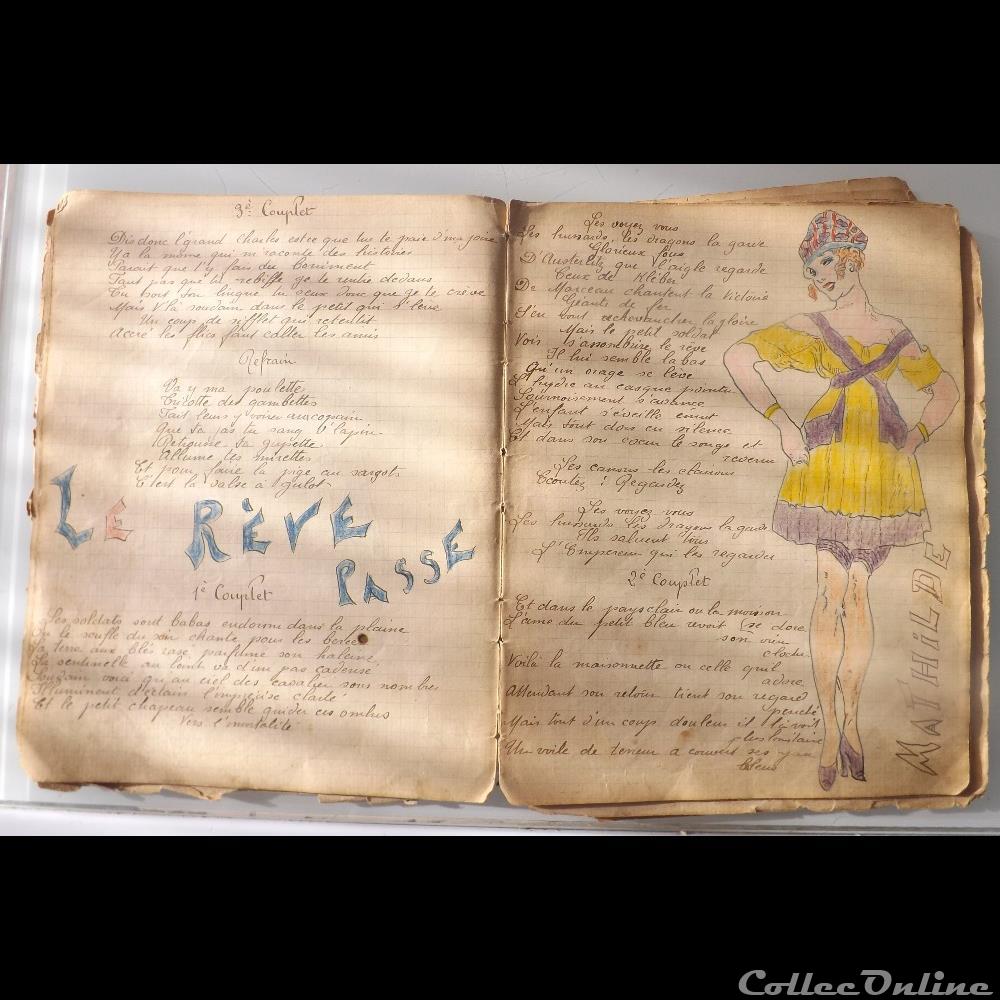 3è Couplet
Dis donc l'grand charles estce que tu te paie d'ma poire
Y'a la môme qui m'raconte des histoires
Parait que t'y fais du boniment
Faut pas que tu rebiffe ge te rentre dedans
Tu sort ton lingue tu veux donc que ge te crève
Mais v'la soudain dans le petit qui s'lève
Un coup de sifflet qui retentit
Acrè les flics faut caller les amis
Refrain
Va y ma poulette
Tricotte des gambettes
Fait leurs y voire aux copain
Que ta pas du sang d'lapin
Relignse ta guipette
Allume tes mirettes
Et pour faire la pige au sargots
C'est la valse à gulot
LE RÈVE
PASSE
1è Couplet
Les soldats sont labas endormi dans la plaine
Ou le soufle du soir chante pour les bercer
La terre aux blés rasé parfume son haleine
La sentinelle au loint va d'un pas cadensé
Soudain voici qu'au ciel des cavalier sons nombres
Illuminent d'éclairs l'imprécise clarté
Et le petit chapeau semble guider ces ombres
Vers l'imortalité
Les voyez vous
Les hussards, les dragons la garde
Glorieux fous
D'Austerlitz que l'aigle regarde
Ceux de Kléber
De Marceau chantent la victoire
Géants de fer
S'en vont chevaucher la gloire
Mais le petit soldat
Vois s'assombrire le rève
Il lui semble labas
Qu'un orage se lève
L'hydre au casque pointu
Sournoisement s'avance
L'enfant s'éveille émut
Mais tout dors en silence
Et dans son coeur le songe et
revenu
Les canons les clairons
Ecoutez ! Regardez
Les voyez vous
Les hussards les dragons la garde
Ils saluent tous
L'Empereur qui les regarde
2è Couplet
Et dans le pays clair ou la moisson
L'ame du petit bleu revoit (se dore
son vieu
clocher
Voilà la maisonnette ou celle quil
adore
Attendant son retour tient son regard
penché
Mais tout d'un coup douleur il la voit
plus lointaine
Un voile de terreur a couvert ses yeux
bleus
MATHILDE
CollecOnline